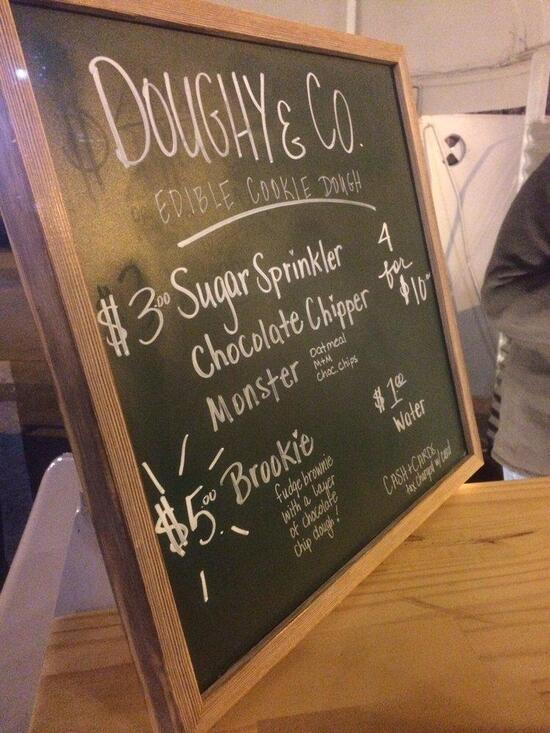 DOUGHY & CO.
EDIBLE COOKIE DOUGH
$3.00 Sugar Sprinkler
Chocolate Chipper
Monster oatmeal
M+M
choc. chips
4
for
$10
$5.00 Brookie
fudge brownie
with a layer
of chocolate
chip dough!
$1.00
Water
CASH + CARDS
tax charged w/ card